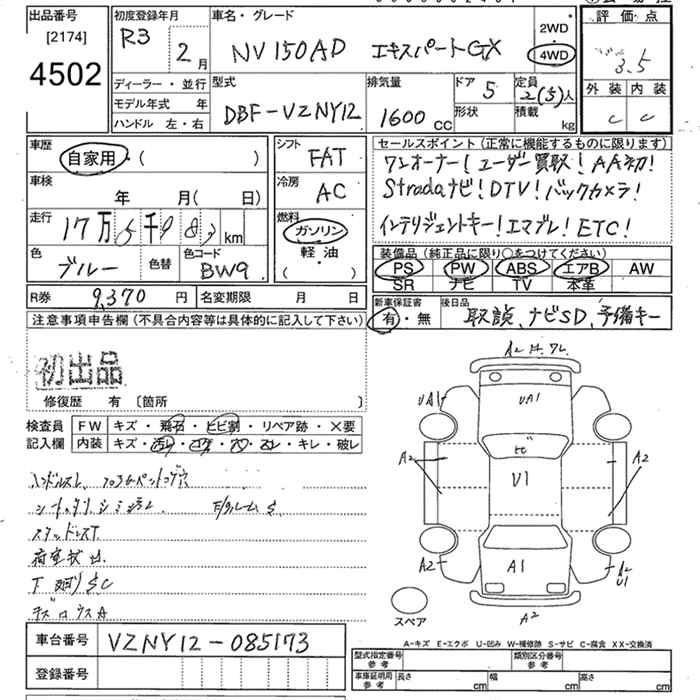 出品番号
[2174]
4502
初度登録年月
R3 2月
車名・グレード
NV150AD エキスパートGX
2WD
4WD
評価点
3.5
外装 内装
C C
ディーラー・並行
モデル年式 年
ハンドル 左・右
型式
DBF-VZNY12
排気量
1600 CC
ドア 5
形状
定員
2(5)人
積載
kg
車歴
自家用・( )
車検
年 月( 日)
走行
17万5千9 8 km
色
ブルー
色替
色コード
BW9
シフト
FAT
冷房
AC
燃料
ガソリン
軽・油
( )
セールスポイント(正常に機能するものに限ります)
ワンオーナー!ユーザー買取!AA初!
Stradaナビ!DTV!バックカメラ!
インテリジェントキー!エマブレ!ETC!
装備品(純正品に限り○をつけてください)
PS PW ABS エアB AW
SR ナビ TV 本革
R券 9,370 円 名変期限 月 日
新車保証書
有・無
後日品
取説、ナビSD、予備キー
注意事項申告欄(不具合内容等は具体的に記入して下さい)
初出品
修復歴 有〔箇所 〕
検査員
記入欄
FW キズ・飛石・ヒビ割・リペア跡・×要
内装 キズ・汚レ・コゲ・穴・スレ・キレ・破レ
ハンドルスレ
スタッドレスT
荷室状出
下廻りSC
A2
UA1
UA1
ヒビ
U1
A2
A2
A1
A2
A2
U1
A2
スペア
A-キズ E-エクボ U-凹み W-補修跡 S-サビ C-腐食 XX-交換済
車台番号 VZNY12-085173
登録番号
型式指定番号
参考
類別区分番号
参考
車庫証明用
参考
長さ cm 幅 cm 高さ cm